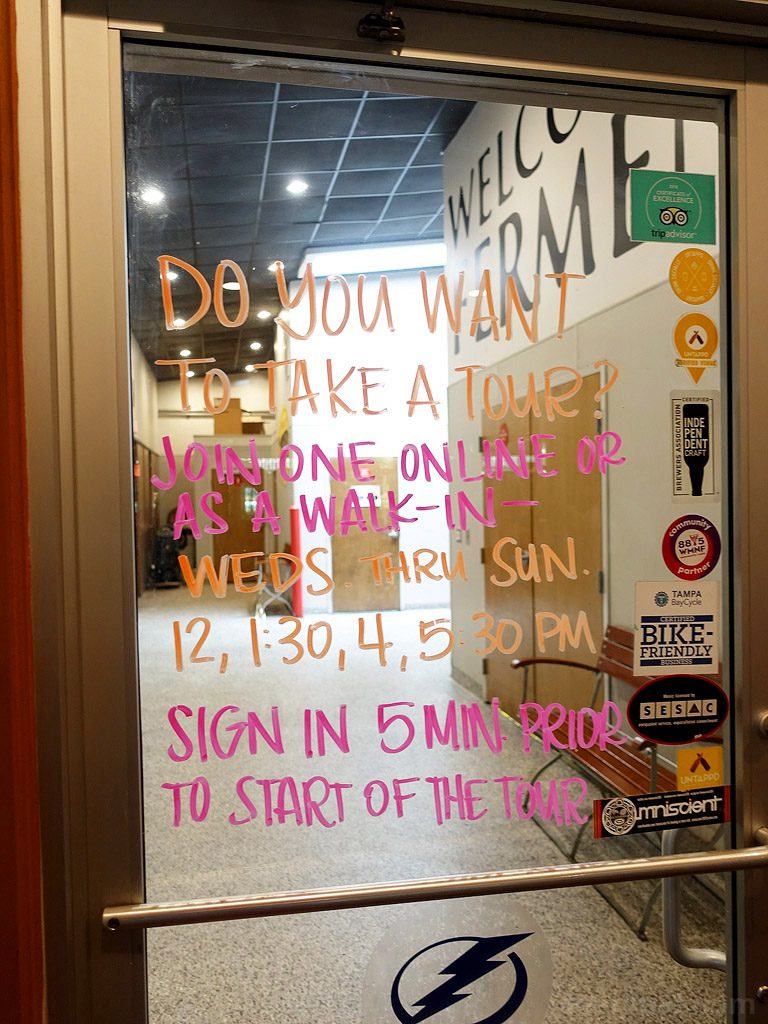 WELCO
FERMEN
DO YOU WANT
TO TAKE A TOUR?
JOIN ONE ONLINE OR
AS A WALK-IN—
WEDS. THRU SUN.
12, 1:30, 4, 5:30 PM
SIGN IN 5 MIN. PRIOR
TO START OF THE TOUR
CERTIFICATE of
EXCELLENCE
tripadvisor
UNTAPPD
CERTIFIED
BREWERS ASSOCIATION
INDE
PEN
DENT
CRAFT
community
88.5
WMNF
partner
TAMPA
BayCycle
CERTIFIED
BIKE-
FRIENDLY
BUSINESS
Music licensed by
SESAC
UNTAPPD
omniscient